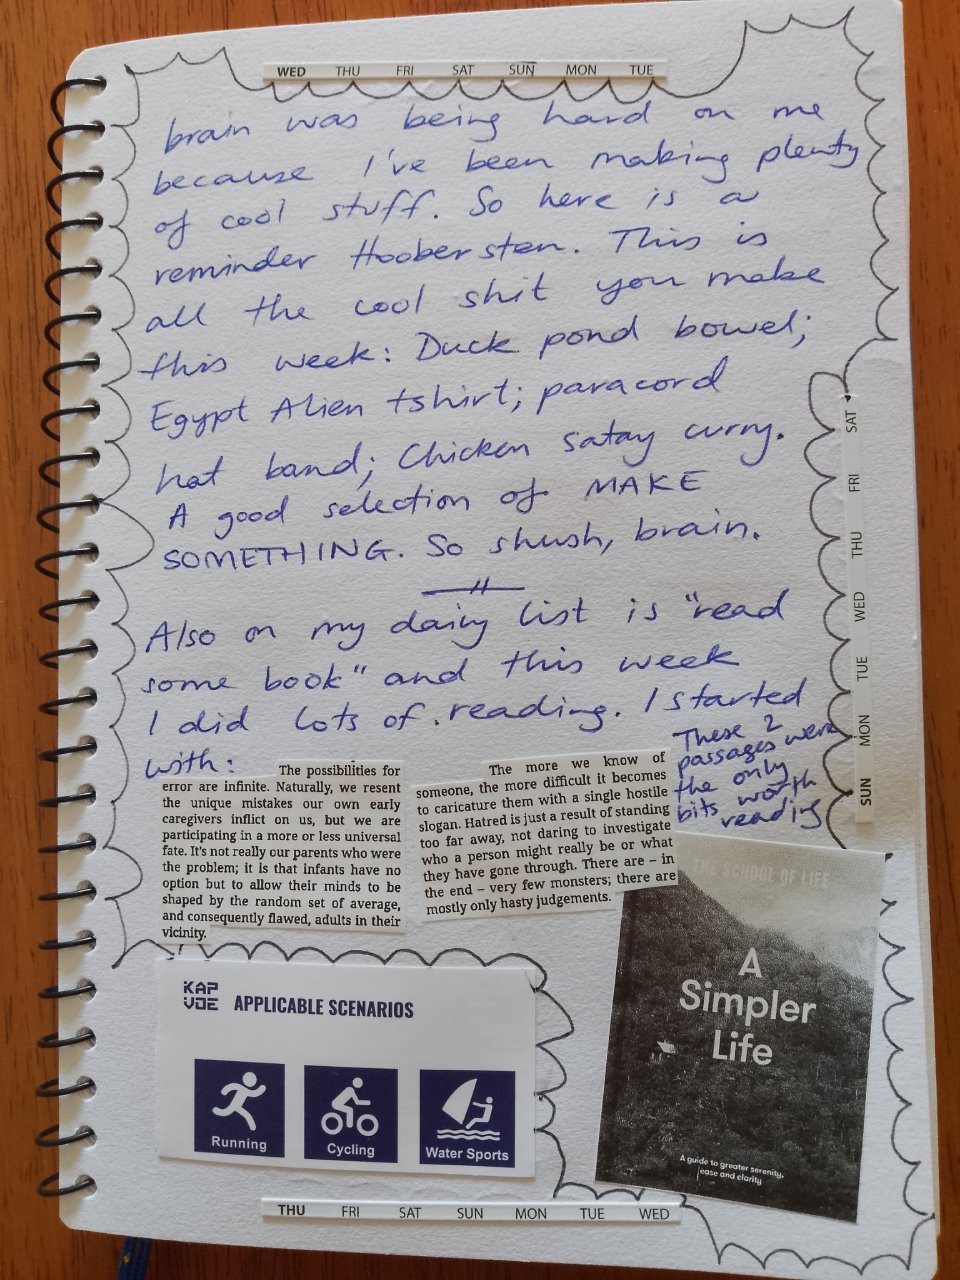 WED THU FRI SAT SUN MON TUE
brain was being hard on me
because I've been making plenty
of cool stuff. So here is a
reminder Hoobersten. This is
all the cool shit you make
this week: Duck pond bowel;
Egypt Alien tshirt; paracord
hat band; Chicken satay curry.
A good selection of MAKE
SOMETHING. So shush, brain.
Also on my daily list is "read
some book" and this week
I did lots of reading. I started
with:
The possibilities for
error are infinite. Naturally, we resent
the unique mistakes our own early
caregivers inflict on us, but we are
participating in a more or less universal
fate. It's not really our parents who were
the problem; it is that infants have no
option but to allow their minds to be
shaped by the random set of average,
and consequently flawed, adults in their
vicinity.
The more we know of
someone, the more difficult it becomes
to caricature them with a single hostile
slogan. Hatred is just a result of standing
too far away, not daring to investigate
who a person might really be or what
they have gone through. There are – in
the end – very few monsters; there are
mostly only hasty judgements.
These 2
passages were
the only
bits worth
reading
SUN MON TUE WED THU FRI SAT
THE SCHOOL OF LIFE
A
Simpler
Life
A guide to greater serenity,
ease and clarity
KAP
VOE
APPLICABLE SCENARIOS
Running
Cycling
Water Sports
THU FRI SAT SUN MON TUE WED